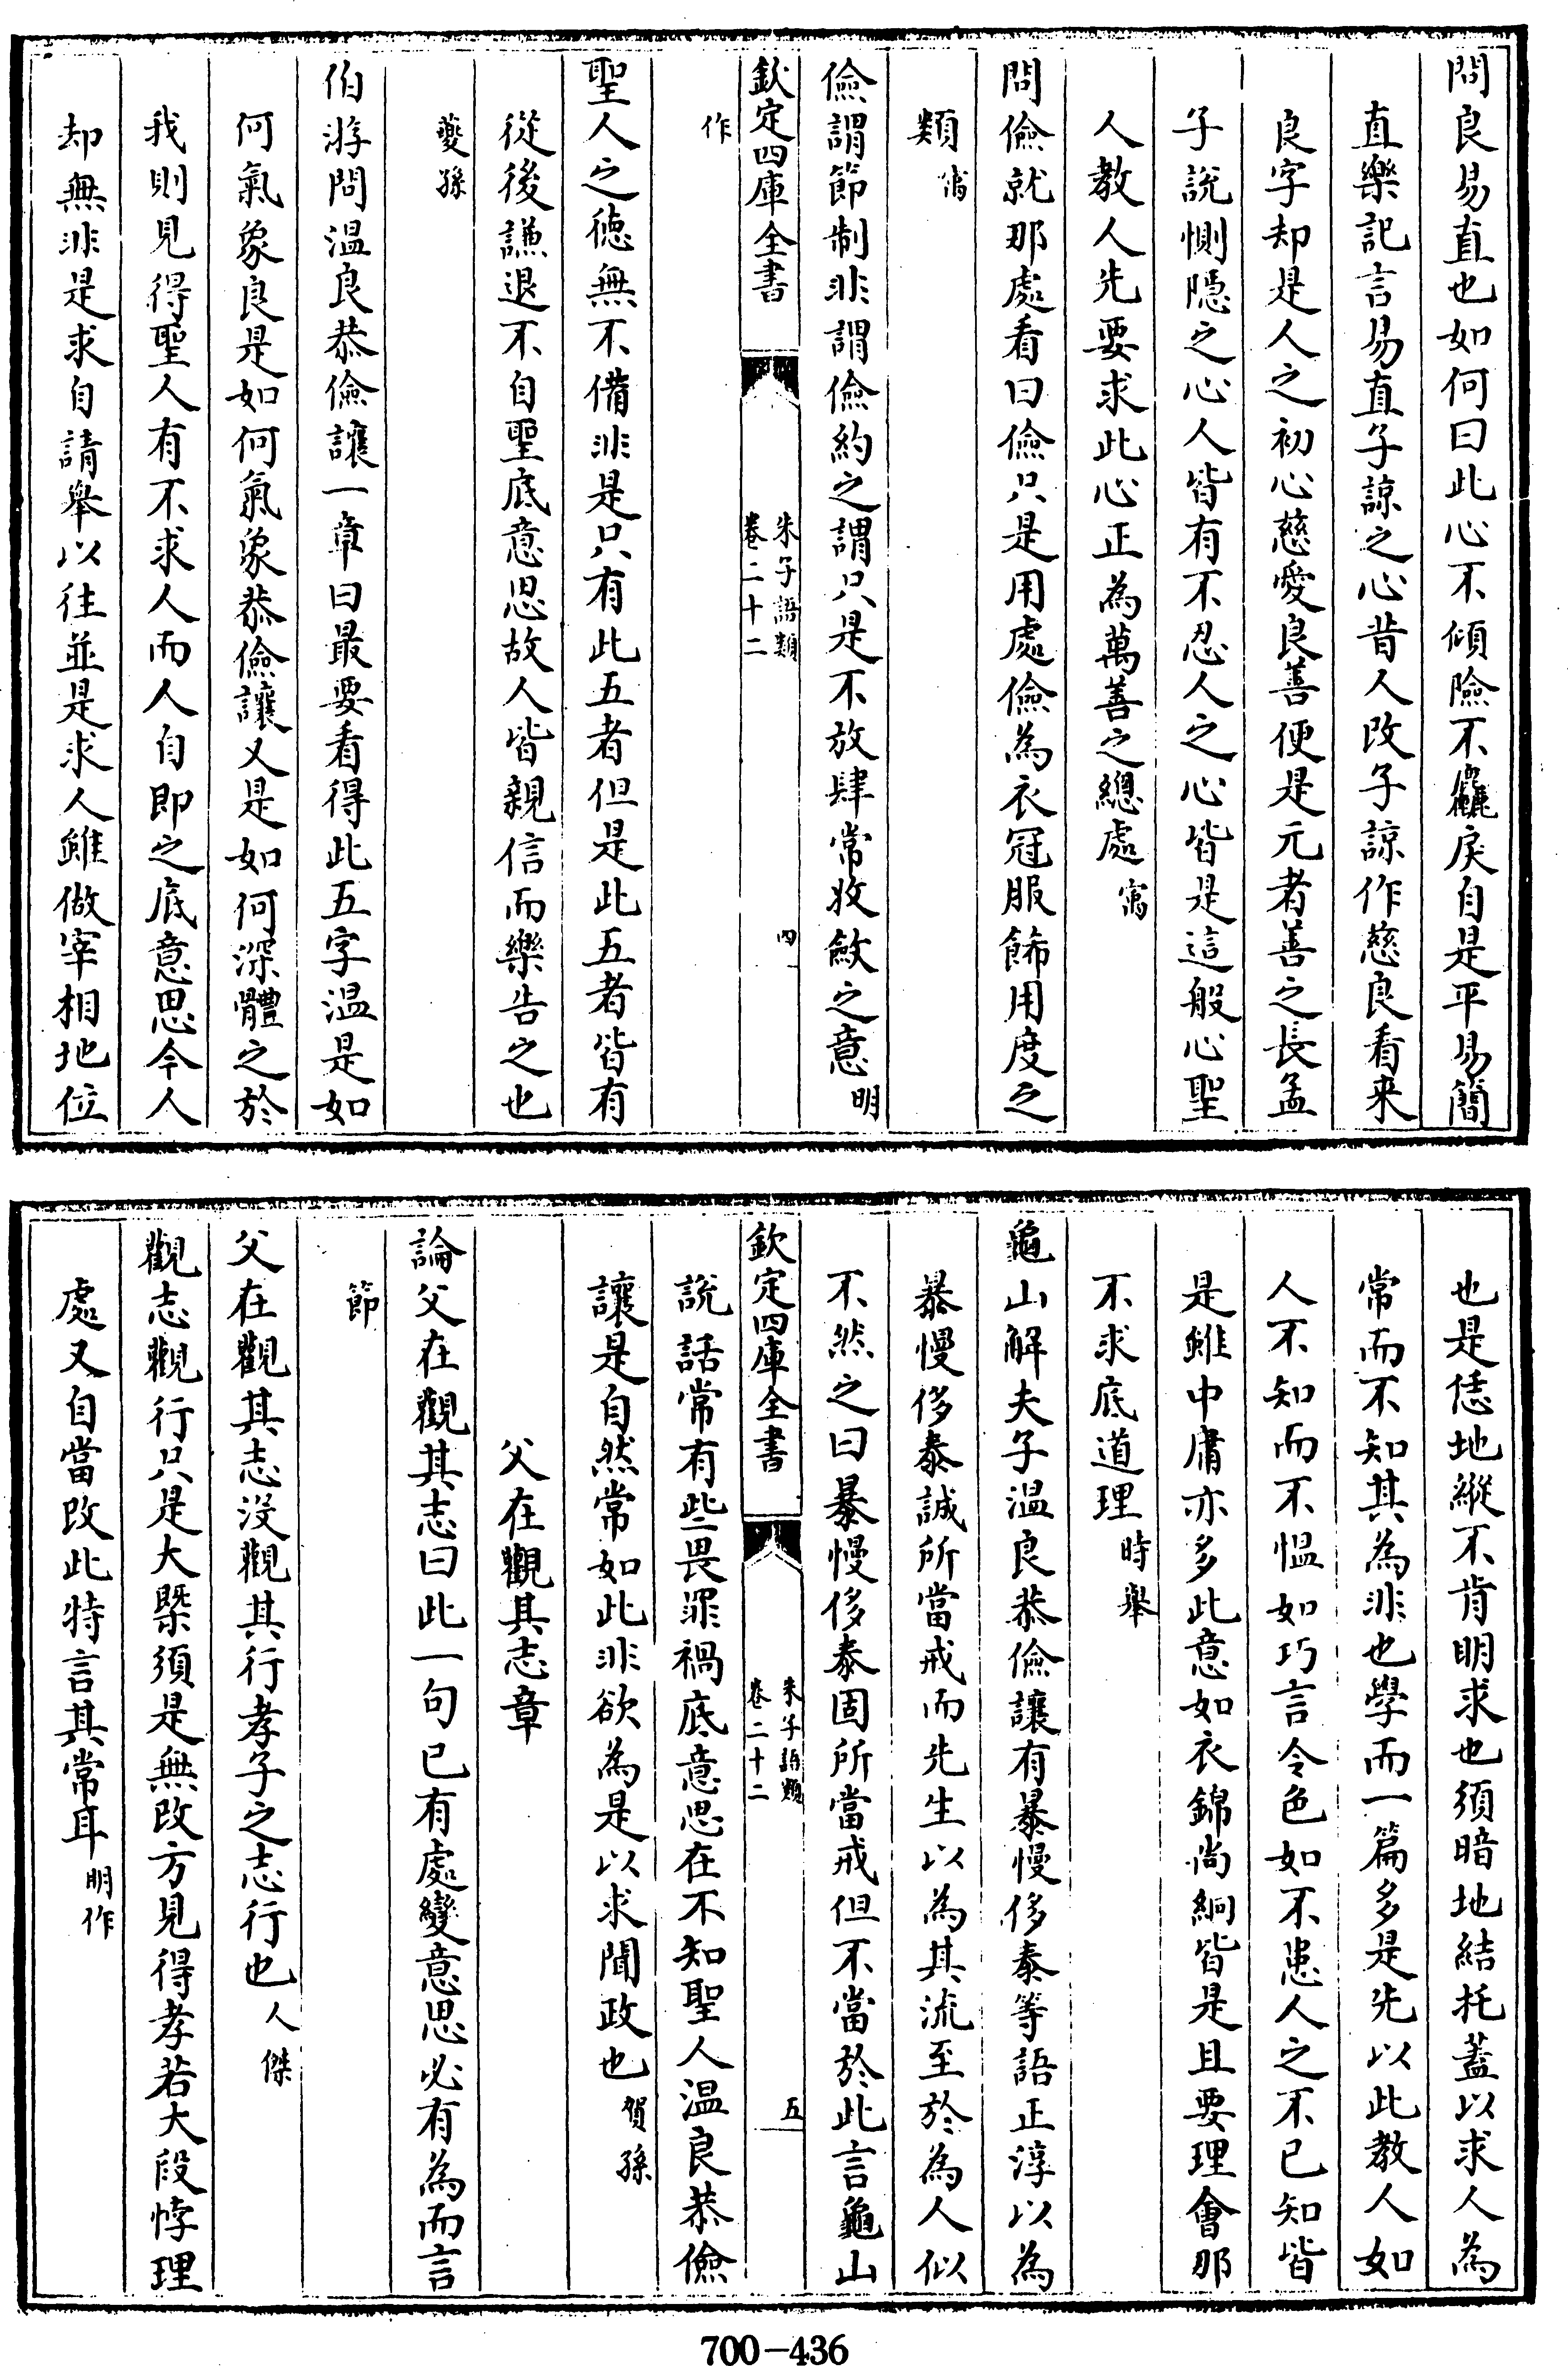 問良易直也如何曰此心不傾險不麤戾自是平易簡
直樂記言易直子諒之心昔人改子諒作慈良看来
良字却是人之初心慈愛良善便是元者善之長孟
子說惻隠之心人皆有不忍人之心皆是這般心聖
人教人先要求此心正為萬善之總處㝢
問儉就那處看曰儉只是用處儉為衣冠服飾用度之
類㒞
儉謂節制非謂儉約之謂只是不放肆常收斂之意明
欽定四庫全書
朱子語類
卷二十二
四
作
聖人之徳無不備非是只有此五者但是此五者皆有
從後謙退不自聖底意思故人皆親信而樂告之也
䕫孫
伯游問温良恭儉讓一章曰最要看得此五字温是如
何氣象良是如何氣象恭儉讓又是如何深體之於
我則見得聖人有不求人而人自即之底意思今人
却無非是求自請舉以往並是求人雖做宰相地位
也是恁地縱不肯明求也須暗地結托葢以求人為
常而不知其為非也學而一篇多是先以此教人如
人不知而不愠如巧言令色如不患人之不已知皆
是雖中庸亦多此意如衣錦尚絅皆是且要理會那
不求底道理時舉
龜山解夫子温良恭儉讓有暴慢侈泰等語正淳以為
暴慢侈泰誠所當戒而先生以為其流至於為人似
不然之曰暴慢侈泰固所當戒但不當於此言龜山
欽定四庫全書
朱子語類
卷二十二
五
說話常有些畏罪禍底意思在不知聖人温良恭儉
讓是自然常如此非欲為是以求聞政也賀孫
父在觀其志章
論父在觀其志曰此一句已有處變意思必有為而言
節
父在觀其志没觀其行孝子之志行也人傑
觀志觀行只是大槩須是無改方見得孝若大段悖理
處又自當改此特言其常耳明作
700-436